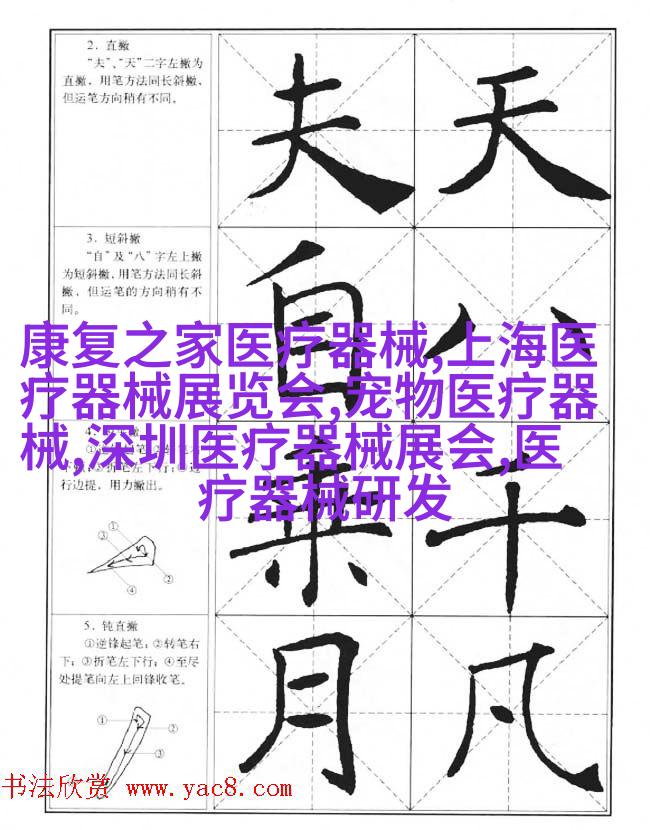 2. 直撇
“夫”、“天”二字左撇为
直撇，用笔方法同长斜撇，
但运笔方向稍有不同。
夫 天
3. 短斜撇
“自”及“八”字左上撇
为短斜撇，用笔方法同长斜
撇，但运笔的方向稍有不
同。
自 八
康复之家医疗器械,上海医
疗器械展览会,宠物医疗器
械,深圳医疗器械展会,医
疗器械研发
4.
行边提，用力撇出。
①
②
③
④
乘 千
5. 钝直撇
①逆锋起笔；②转笔右
下；③折笔左下行；④至尽
处提笔向左上回锋收笔。
①
②
③
月 凡
书法欣赏 www.yac8.com